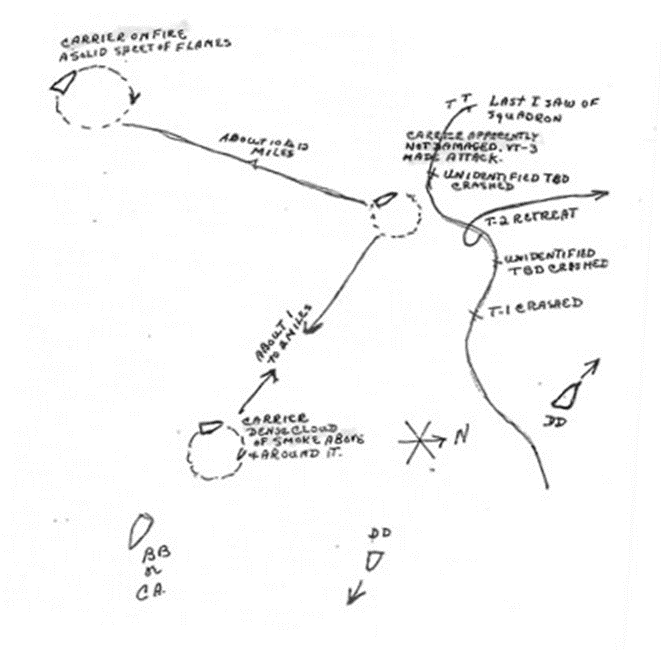 CARRIER ON FIRE
A SOLID SHEET OF FLAMES
ABOUT 10 to 12
MILES
T T
LAST I SAW OF
SQUADRON
CARRIER APPARENTLY
NOT DAMAGED. VT-3
MADE ATTACK.
UNIDENTIFIED TBD
CRASHED
T-2 RETREAT
UNIDENTIFIED
TBD CRASHED
T-1 CRASHED
ABOUT 1
TO 2 MILES
DD
CARRIER
DENSE CLOUD
OF SMOKE ABOVE
& AROUND IT.
N
BB
or
CA.
DD